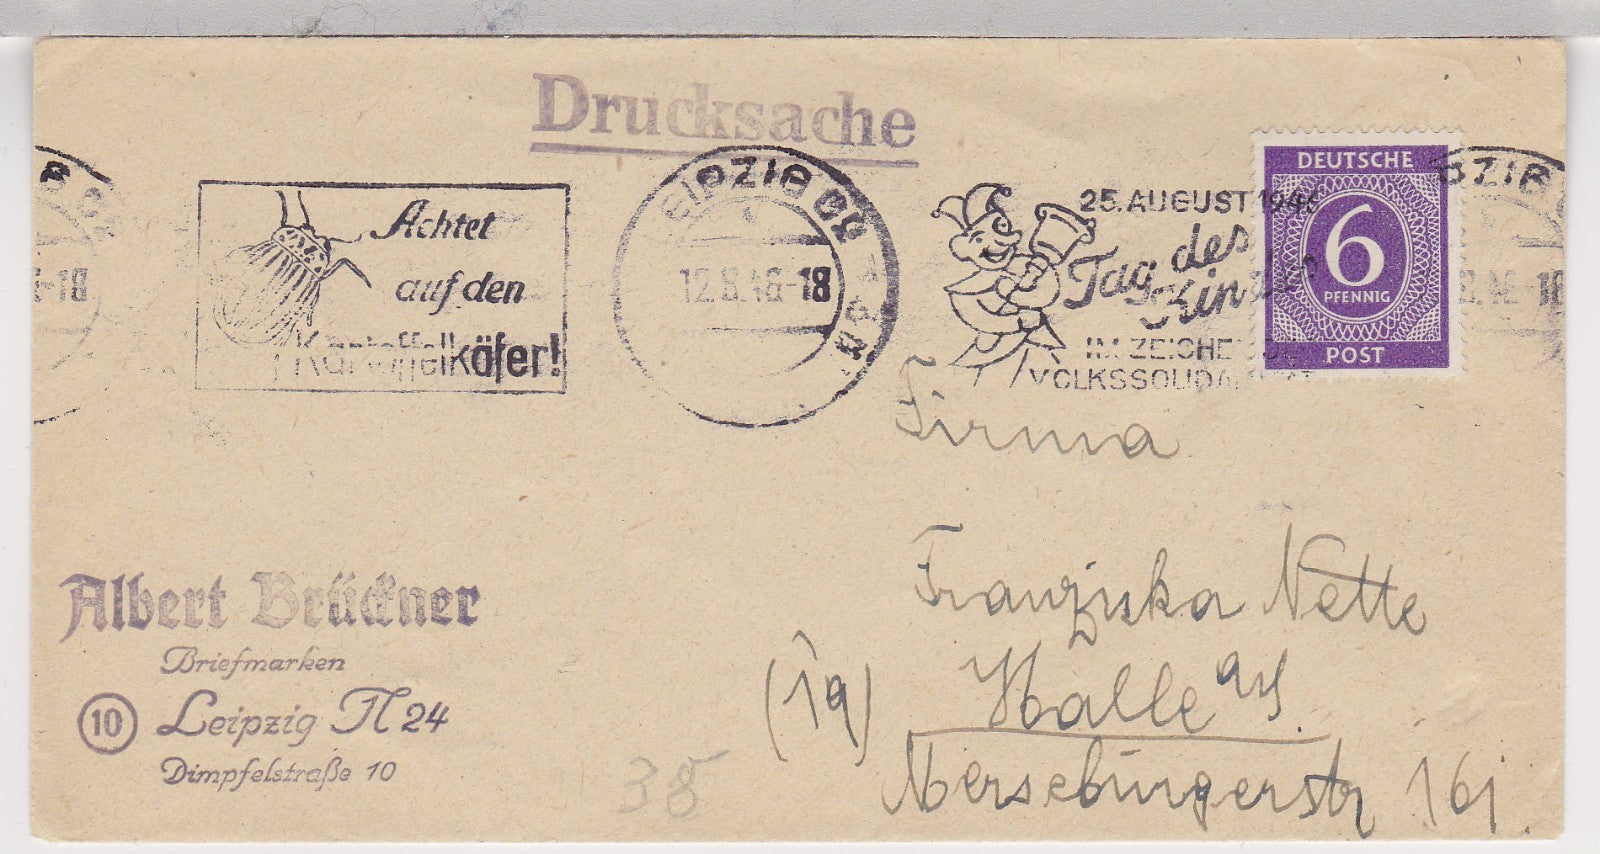 Drucksache
Achtet
auf den
Kartoffelkäfer!
LEIPZIG
12.8.46-18
25. AUGUST 1946
Tag des
Kindes
IM ZEICHEN DER
VOLKSSOLIDARITÄT
DEUTSCHE
6
PFENNIG
POST
ZIG
-18
Firma
Franziska Nette
(19) Halle a/S.
Merseburgerstr 161
Albert Brückner
Briefmarken
10 Leipzig N 24
Dimpfelstraße 10
38